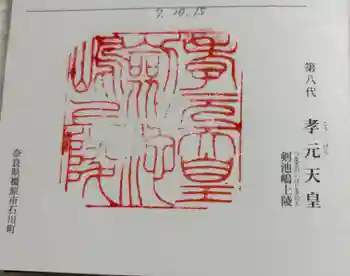 7.10.15
第八代
孝元天皇
こう げん
剣池嶋上陵
つるぎのいけのしまのえの
孝元天皇
劔池
嶋上陵
奈良県橿原市石川町